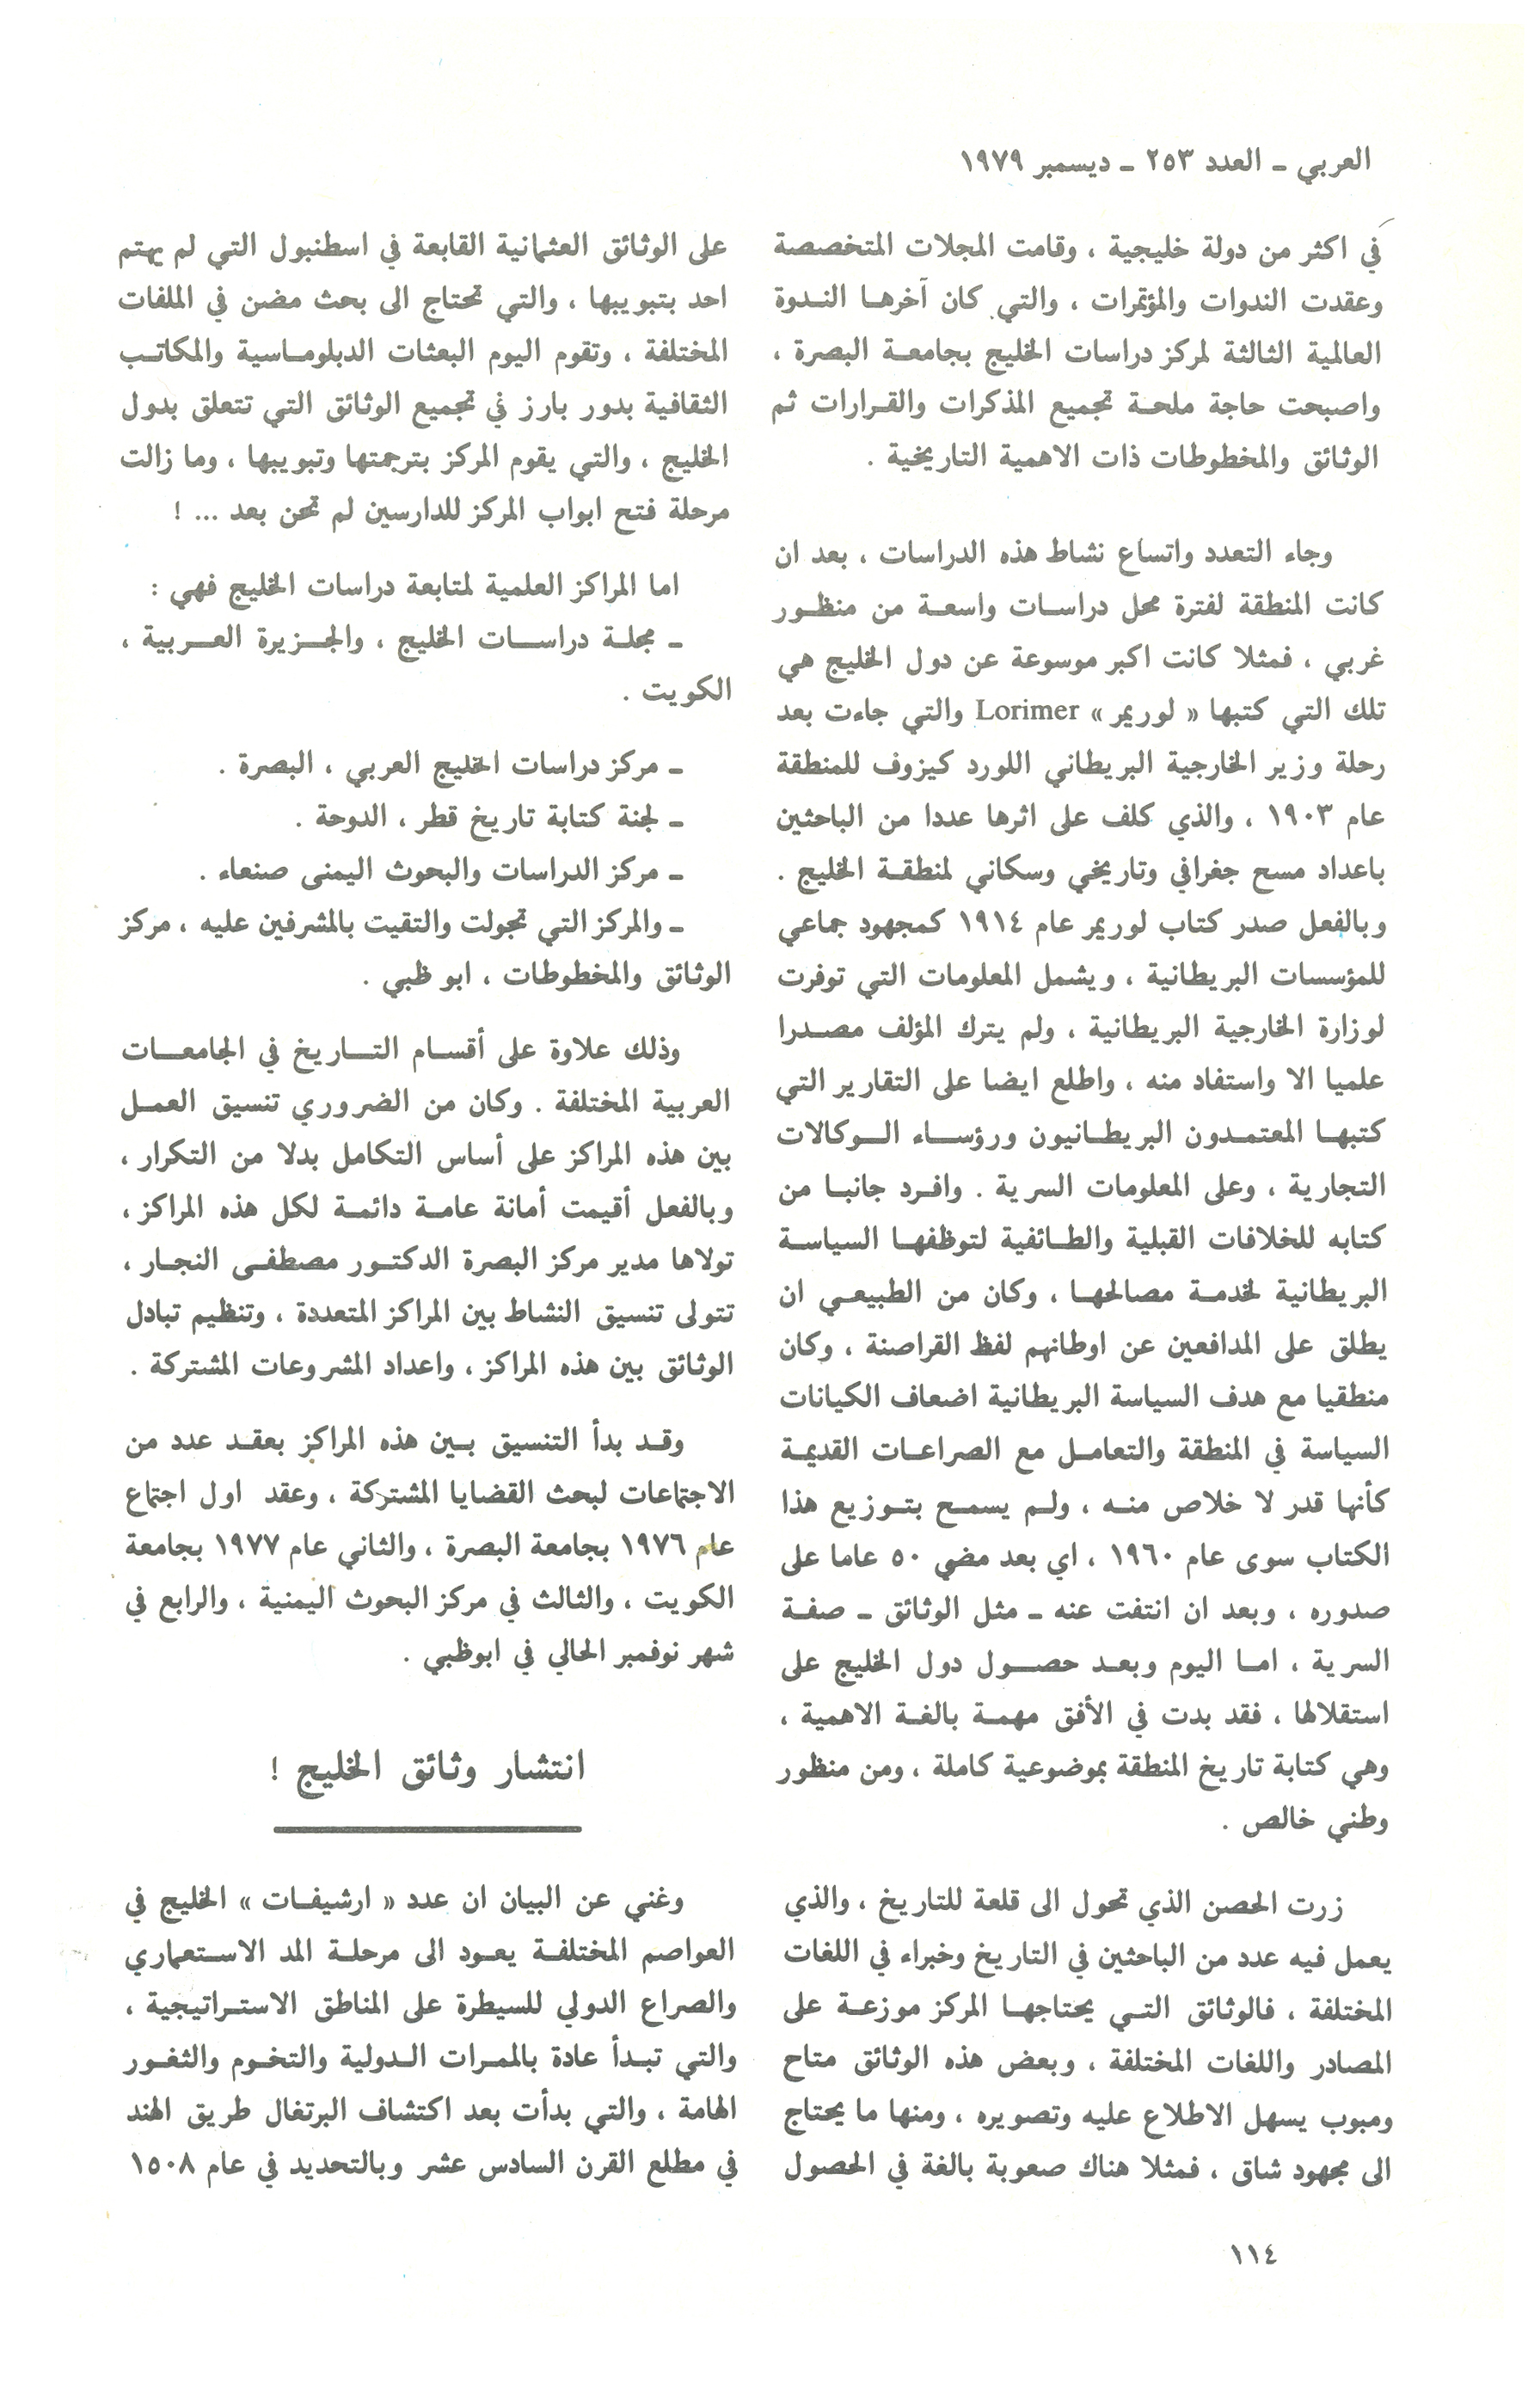 العربي ـ العدد ٢٥٣ ـ ديسمبر ١٩٧٩
في اكثر من دولة خليجية ، وقامت المجلات المتخصصة
وعقدت الندوات والمؤتمرات ، والتي كان آخرها الندوة
العالمية الثالثة لمركز دراسات الخليج بجامعة البصرة ،
واصبحت حاجة ملحة تجميع المذكرات والقرارات ثم
الوثائق والمخطوطات ذات الاهمية التاريخية .
وجاء التعدد واتساع نشاط هذه الدراسات ، بعد ان
كانت المنطقة لفترة محل دراسات واسعة من منظور
غربي ، فمثلا كانت اكبر موسوعة عن دول الخليج هي
تلك التي كتبها « لوريمر » Lorimer والتي جاءت بعد
رحلة وزير الخارجية البريطاني اللورد كيزوف للمنطقة
عام ١٩٠٣ ، والذي كلف على اثرها عددا من الباحثين
باعداد مسح جغرافي وتاريخي وسكاني لمنطقة الخليج .
وبالفعل صدر كتاب لوريمر عام ١٩١٤ كمجهود جماعي
للمؤسسات البريطانية ، ويشمل المعلومات التي توفرت
لوزارة الخارجية البريطانية ، ولم يترك المؤلف مصدرا
علميا الا واستفاد منه ، واطلع ايضا على التقارير التي
كتبها المعتمدون البريطانيون ورؤساء الوكالات
التجارية ، وعلى المعلومات السرية . وافرد جانبا من
كتابه للخلافات القبلية والطائفية لتوظفها السياسة
البريطانية لخدمة مصالحها ، وكان من الطبيعي ان
يطلق على المدافعين عن اوطانهم لفظ القراصنة ، وكان
منطقيا مع هدف السياسة البريطانية اضعاف الكيانات
السياسة في المنطقة والتعامل مع الصراعات القديمة
كأنها قدر لا خلاص منه ، ولم يسمح بتوزيع هذا
الكتاب سوى عام ١٩٦٠ ، اي بعد مضي ٥٠ عاما على
صدوره ، وبعد ان انتفت عنه ـ مثل الوثائق ـ صفة
السرية ، اما اليوم وبعد حصول دول الخليج على
استقلالها ، فقد بدت في الأفق مهمة بالغة الاهمية ،
وهي كتابة تاريخ المنطقة بموضوعية كاملة ، ومن منظور
وطني خالص .
زرت الحصن الذي تحول الى قلعة للتاريخ ، والذي
يعمل فيه عدد من الباحثين في التاريخ وخبراء في اللغات
المختلفة ، فالوثائق التي يحتاجها المركز موزعة على
المصادر واللغات المختلفة ، وبعض هذه الوثائق متاح
ومبوب يسهل الاطلاع عليه وتصويره ، ومنها ما يحتاج
الى مجهود شاق ، فمثلا هناك صعوبة بالغة في الحصول
على الوثائق العثمانية القابعة في اسطنبول التي لم يهتم
احد بتبويبها ، والتي تحتاج الى بحث مضن في الملفات
المختلفة ، وتقوم اليوم البعثات الدبلوماسية والمكاتب
الثقافية بدور بارز في تجميع الوثائق التي تتعلق بدول
الخليج ، والتي يقوم المركز بترجمتها وتبويبها ، وما زالت
مرحلة فتح ابواب المركز للدارسين لم تحن بعد ... !
اما المراكز العلمية لمتابعة دراسات الخليج فهي :
ـ مجلة دراسات الخليج ، والجزيرة العربية ،
الكويت .
ـ مركز دراسات الخليج العربي ، البصرة .
ـ لجنة كتابة تاريخ قطر ، الدوحة .
ـ مركز الدراسات والبحوث اليمنى صنعاء .
ـ والمركز التي تجولت والتقيت بالمشرفين عليه ، مركز
الوثائق والمخطوطات ، ابو ظبي .
وذلك علاوة على أقسام التاريخ في الجامعات
العربية المختلفة . وكان من الضروري تنسيق العمل
بين هذه المراكز على أساس التكامل بدلا من التكرار ،
وبالفعل أقيمت أمانة عامة دائمة لكل هذه المراكز ،
تولاها مدير مركز البصرة الدكتور مصطفى النجار ،
تتولى تنسيق النشاط بين المراكز المتعددة ، وتنظيم تبادل
الوثائق بين هذه المراكز ، واعداد المشروعات المشتركة .
وقد بدأ التنسيق بين هذه المراكز بعقد عدد من
الاجتماعات لبحث القضايا المشتركة ، وعقد اول اجتماع
عام ١٩٧٦ بجامعة البصرة ، والثاني عام ١٩٧٧ بجامعة
الكويت ، والثالث في مركز البحوث اليمنية ، والرابع في
شهر نوفمبر الحالي في ابوظبي .
انتشار وثائق الخليج !
وغني عن البيان ان عدد « ارشيفات » الخليج في
العواصم المختلفة يعود الى مرحلة المد الاستعماري
والصراع الدولي للسيطرة على المناطق الاستراتيجية ،
والتي تبدأ عادة بالممرات الدولية والتخوم والثغور
الهامة ، والتي بدأت بعد اكتشاف البرتغال طريق الهند
في مطلع القرن السادس عشر وبالتحديد في عام ١٥٠٨
١١٤